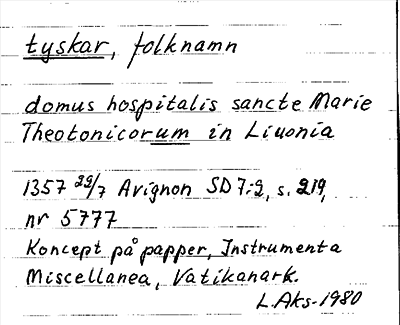 tyskar, folknamn
domus hospitalis sancte Marie
Theotonicorum in Liuonia
1357 29/7 Avignon SD 7:2, s. 219,
nr 5777
Koncept på papper, Instrumenta
Miscellanea, Vatikanark.
L. Aks-1980